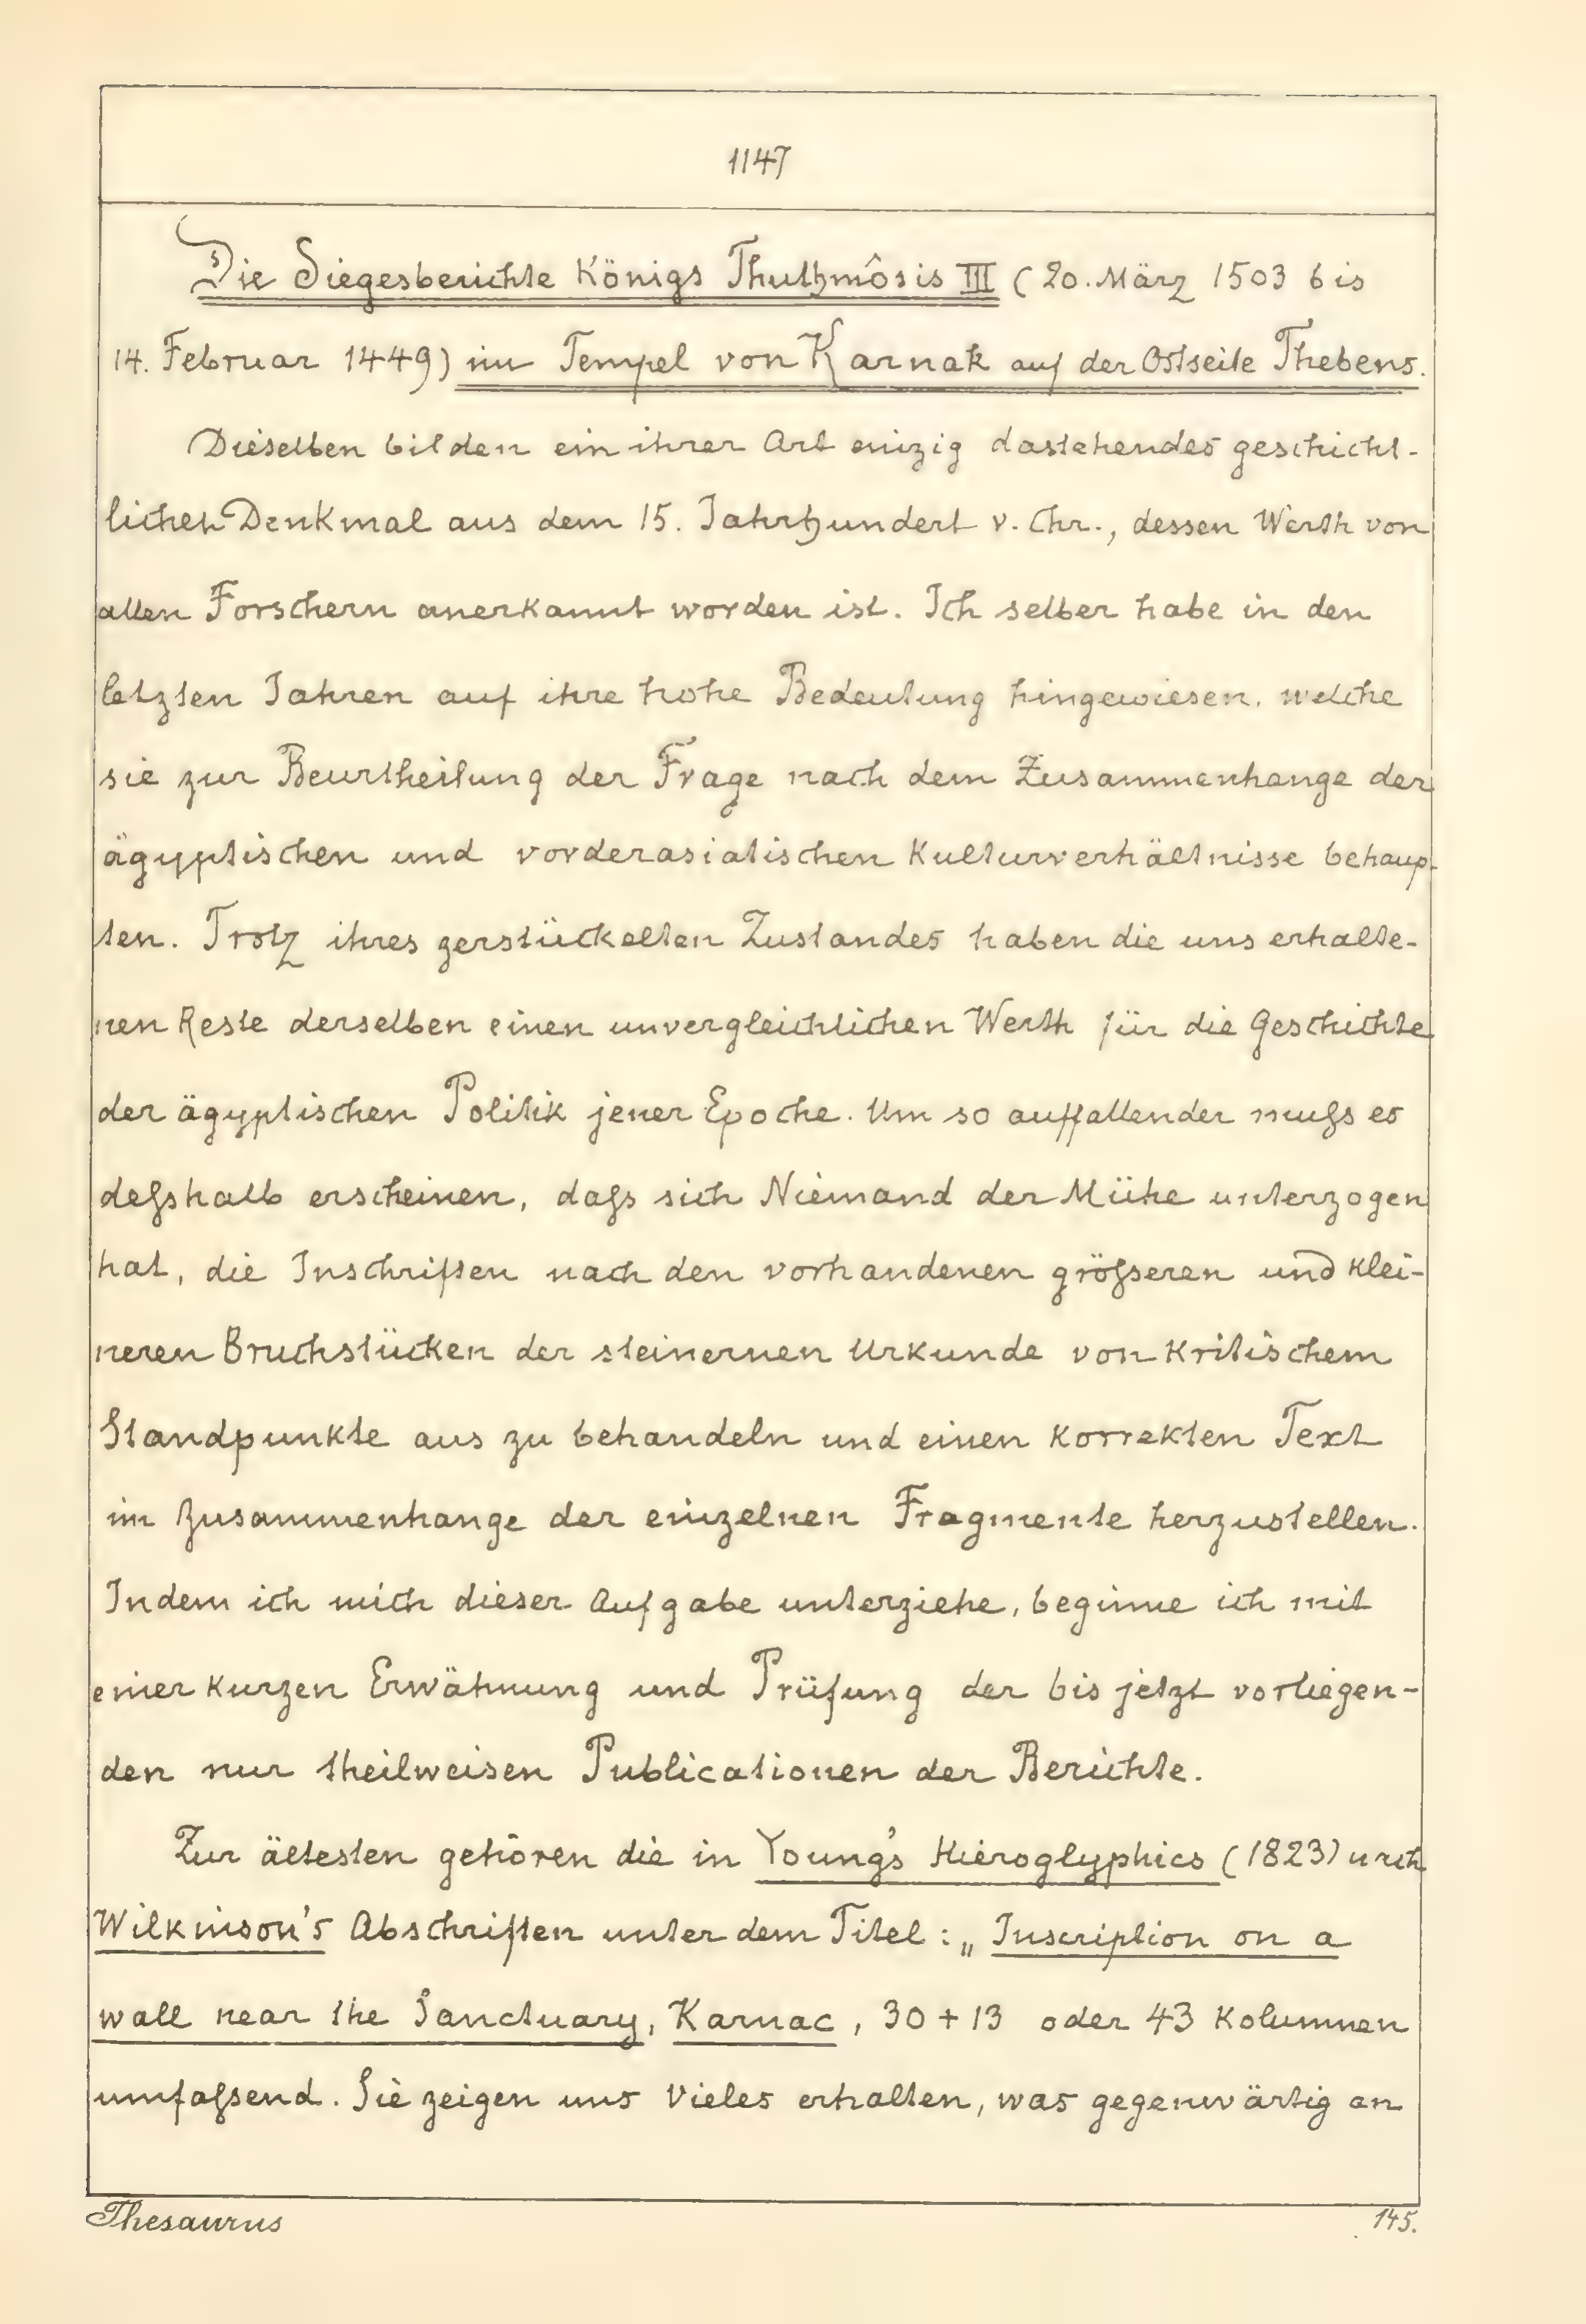 1147
Die Siegesberichte Königs Thutmôsis III (20. März 1503 bis
14. Februar 1449) im Tempel von Karnak auf der Ostseite Thebens.
Dieselben bilden ein ihrer Art einzig dastehendes geschicht-
liches Denkmal aus dem 15. Jahrhundert v. Chr., dessen Werth von
allen Forschern anerkannt worden ist. Ich selber habe in den
letzten Jahren auf ihre hohe Bedeutung hingewiesen, welche
sie zur Beurtheilung der Frage nach dem Zusammenhange der
ägyptischen und vorderasiatischen Kulturverhältnisse behaup-
ten. Trotz ihres zerstückelten Zustandes haben die uns erhalte-
nen Reste derselben einen unvergleichlichen Werth für die Geschichte
der ägyptischen Politik jener Epoche. Um so auffallender muſs es
deſshalb erscheinen, daſs sich Niemand der Mühe unterzogen
hat, die Inschriften nach den vorhandenen gröſseren und klei-
neren Bruchstücken der steinernen Urkunde von kritischem
Standpunkte aus zu behandeln und einen korrekten Text
im Zusammenhange der einzelnen Fragmente herzustellen.
Indem ich mich dieser Aufgabe unterziehe, beginne ich mit
einer kurzen Erwähnung und Prüfung der bis jetzt vorliegen-
den nur theilweisen Publicationen der Berichte.
Zur ältesten gehören die in Young's Hieroglyphics (1823) nach
Wilkinson's Abschriften unter dem Titel: „Inscription on a
wall near the Sanctuary, Karnac, 30 + 13 oder 43 Kolumnen
umfaſsend. Sie zeigen uns Vieles erhalten, was gegenwärtig an
Thesaurus
145.